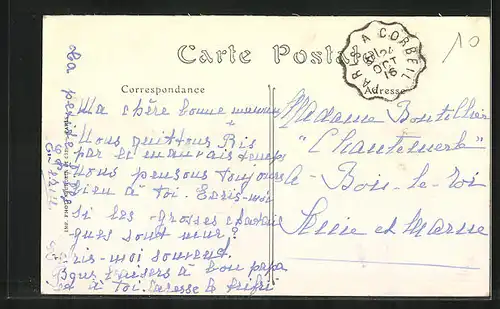 Carte Postale
Correspondance
Adresse
PARIS A CORBEIL
24
OCT
16
10
Ma chère bonne maman
Nous quittons Ris
par ce mauvais temps
nous pensons toujours
bien à toi. Ecris-moi
si les grosses chatai
gnes sont mûr?
Ecris-moi souvent.
Bons baisers à bon papa
et à toi. Caresse le frifri
La petite
Madame Bouteiller
"Chantemerle"
à Bois-le-roi
Seine et Marne